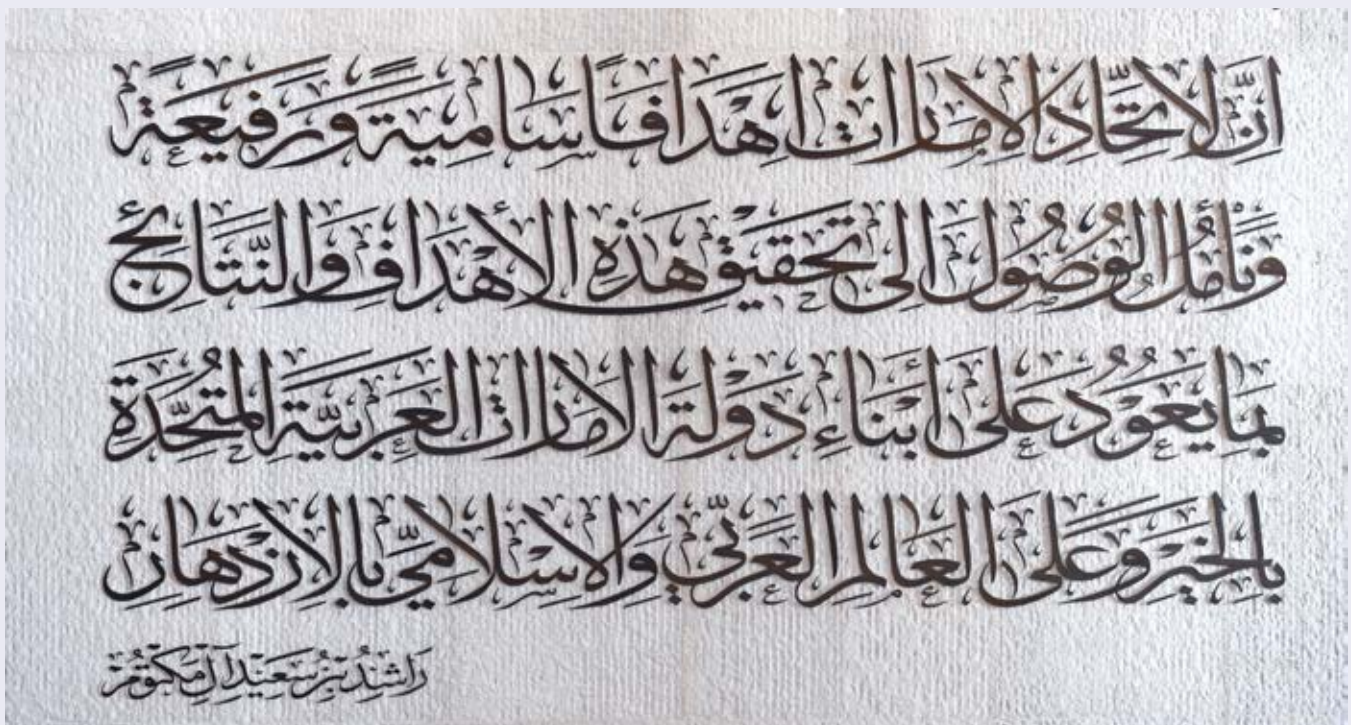 انَّ لاتحَّادِ الامارات اهْدافًا سَاميةً ورَفيعَة
ونأْمُل الوُصُول الى تحقيق هَذِهِ الأهْداف والنَّتائج
بما يعُود عَلى أبْناءِ دَولة الامارات العَربيَّة المتُحَّدَة
بالخيْر وَعَلى العَالم العَربيِّ والاسْلاميِّ بالازْدهار
رَاشدُ بنُ سَعيْد آل مَكتُوم